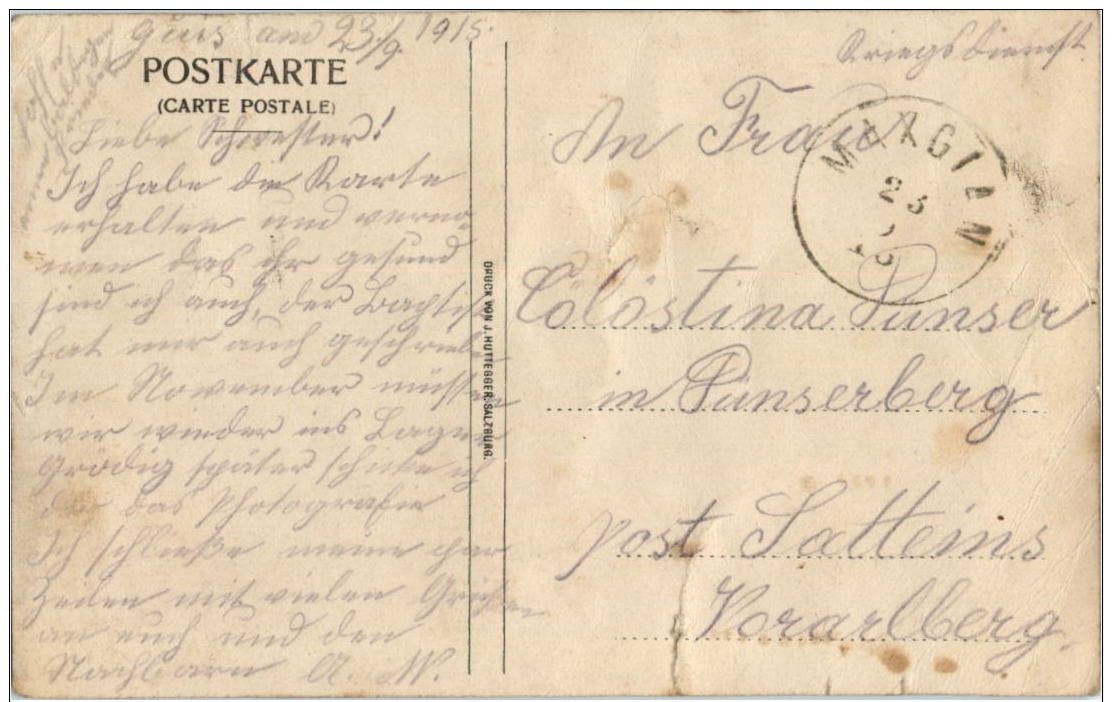 am 23/9. 1915.
POSTKARTE
(CARTE POSTALE)
Liebe Schwester!
Ich habe die Karte
erhalten und verno-
men das ihr gesund
sind ich auch, der Baptist
hat mir auch geschrieben
Im November müssen
wir wieder ins Lager
Grödig später schicke ich
das Photografie
Ich schließe meine par
Zeilen mit vielen Grüßen
an euch und den
Nachbarn A. M.
DRUCK VON J. HUTTEGGER, SALZBURG.
Kriegsdienst.
An Frau
MAXGLAN
23
Cölöstina Pünser
in Pünserberg
post Satteins
Vorarlberg.